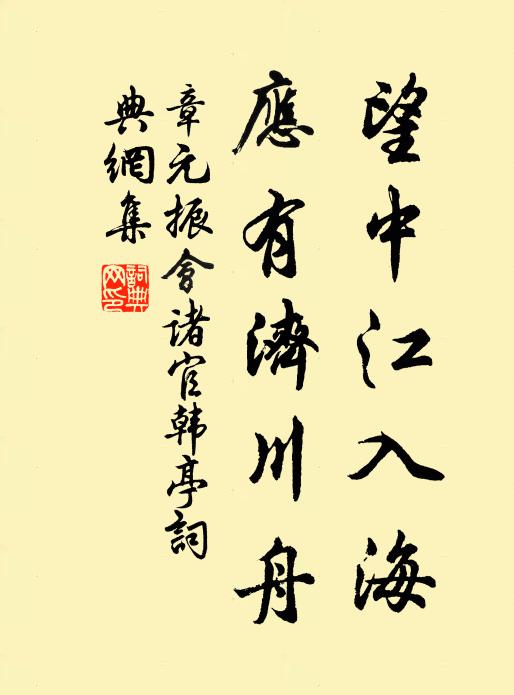 望中江入海
應有濟川舟
章元振會诸官韩亭詞
典網集
詞典
网印